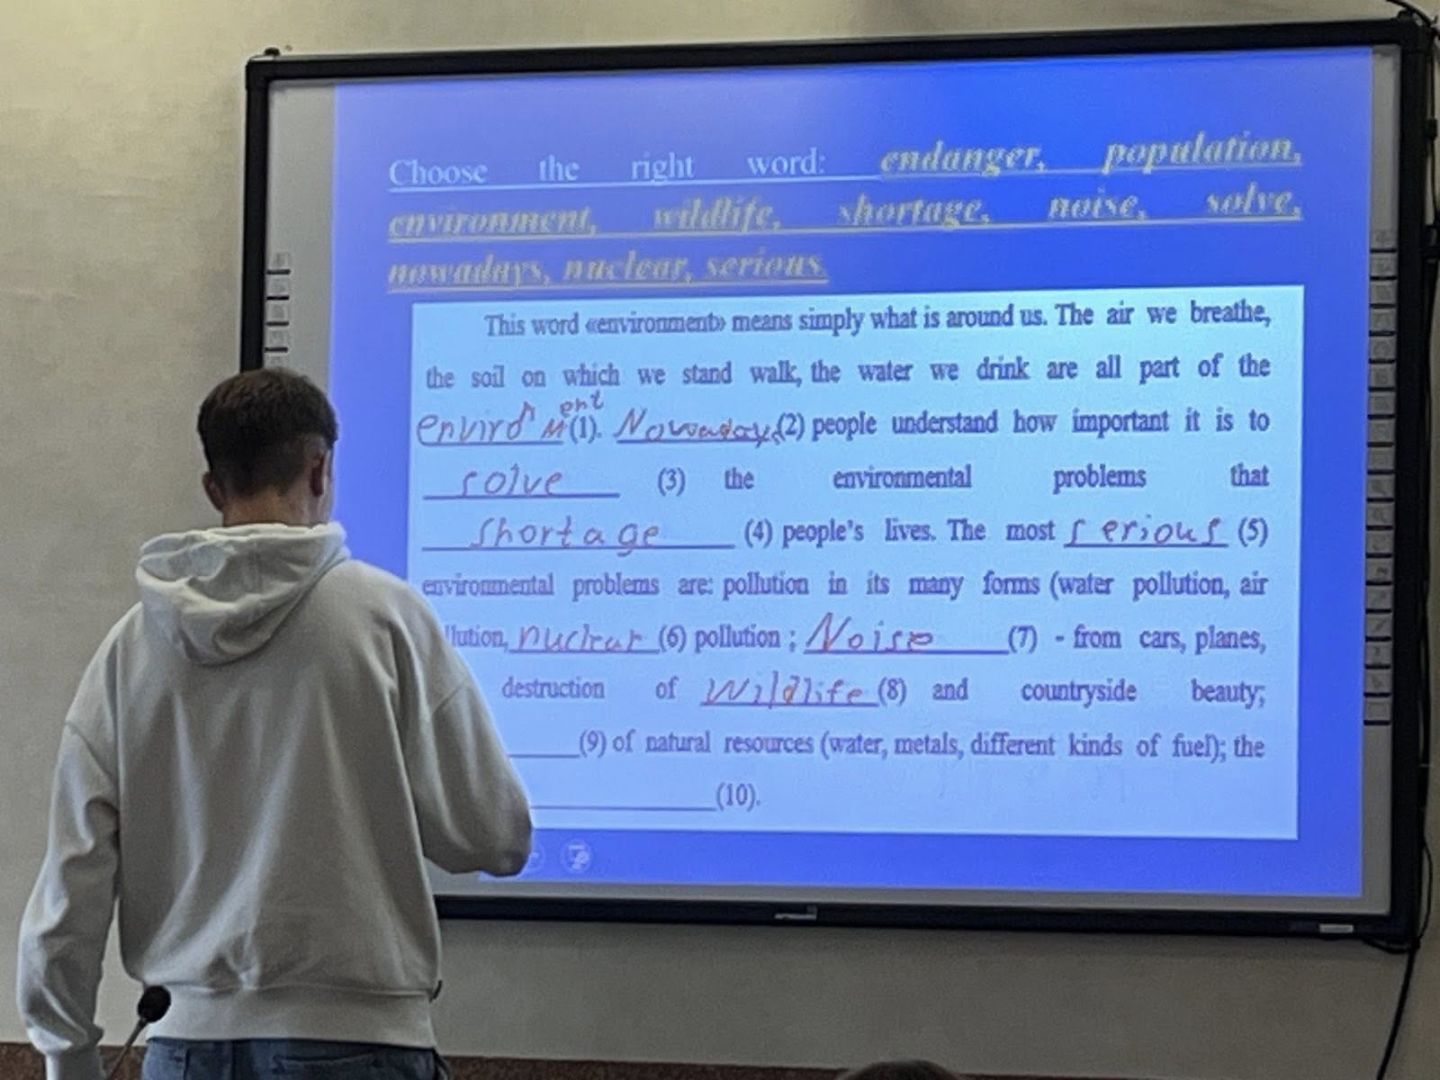 Choose the right word: endanger, population,
environment, wildlife, shortage, noise, solve,
nowadays, nuclear, serious.
This word «environment» means simply what is around us. The air we breathe,
the soil on which we stand walk, the water we drink are all part of the
environment (1). Nowadays (2) people understand how important it is to
solve (3) the environmental problems that
shortage (4) people's lives. The most serious (5)
environmental problems are: pollution in its many forms (water pollution, air
llution, nuclear (6) pollution ; Noise (7) - from cars, planes,
destruction of Wildlife (8) and countryside beauty;
(9) of natural resources (water, metals, different kinds of fuel); the
(10).